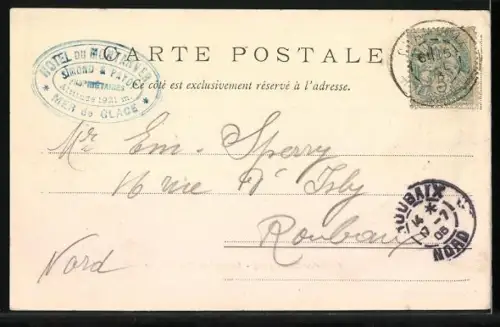 CARTE POSTALE
Ce côté est exclusivement réservé à l'adresse.
HOTEL DU MONTANVERT
SIMOND & PAYOT
PROPRIÉTAIRES
Altitude 1921 m.
* MER de GLACE *
Mr Em. Sperry
16 rue d'Isly
Roubaix
Nord
ROUBAIX
*
NORD